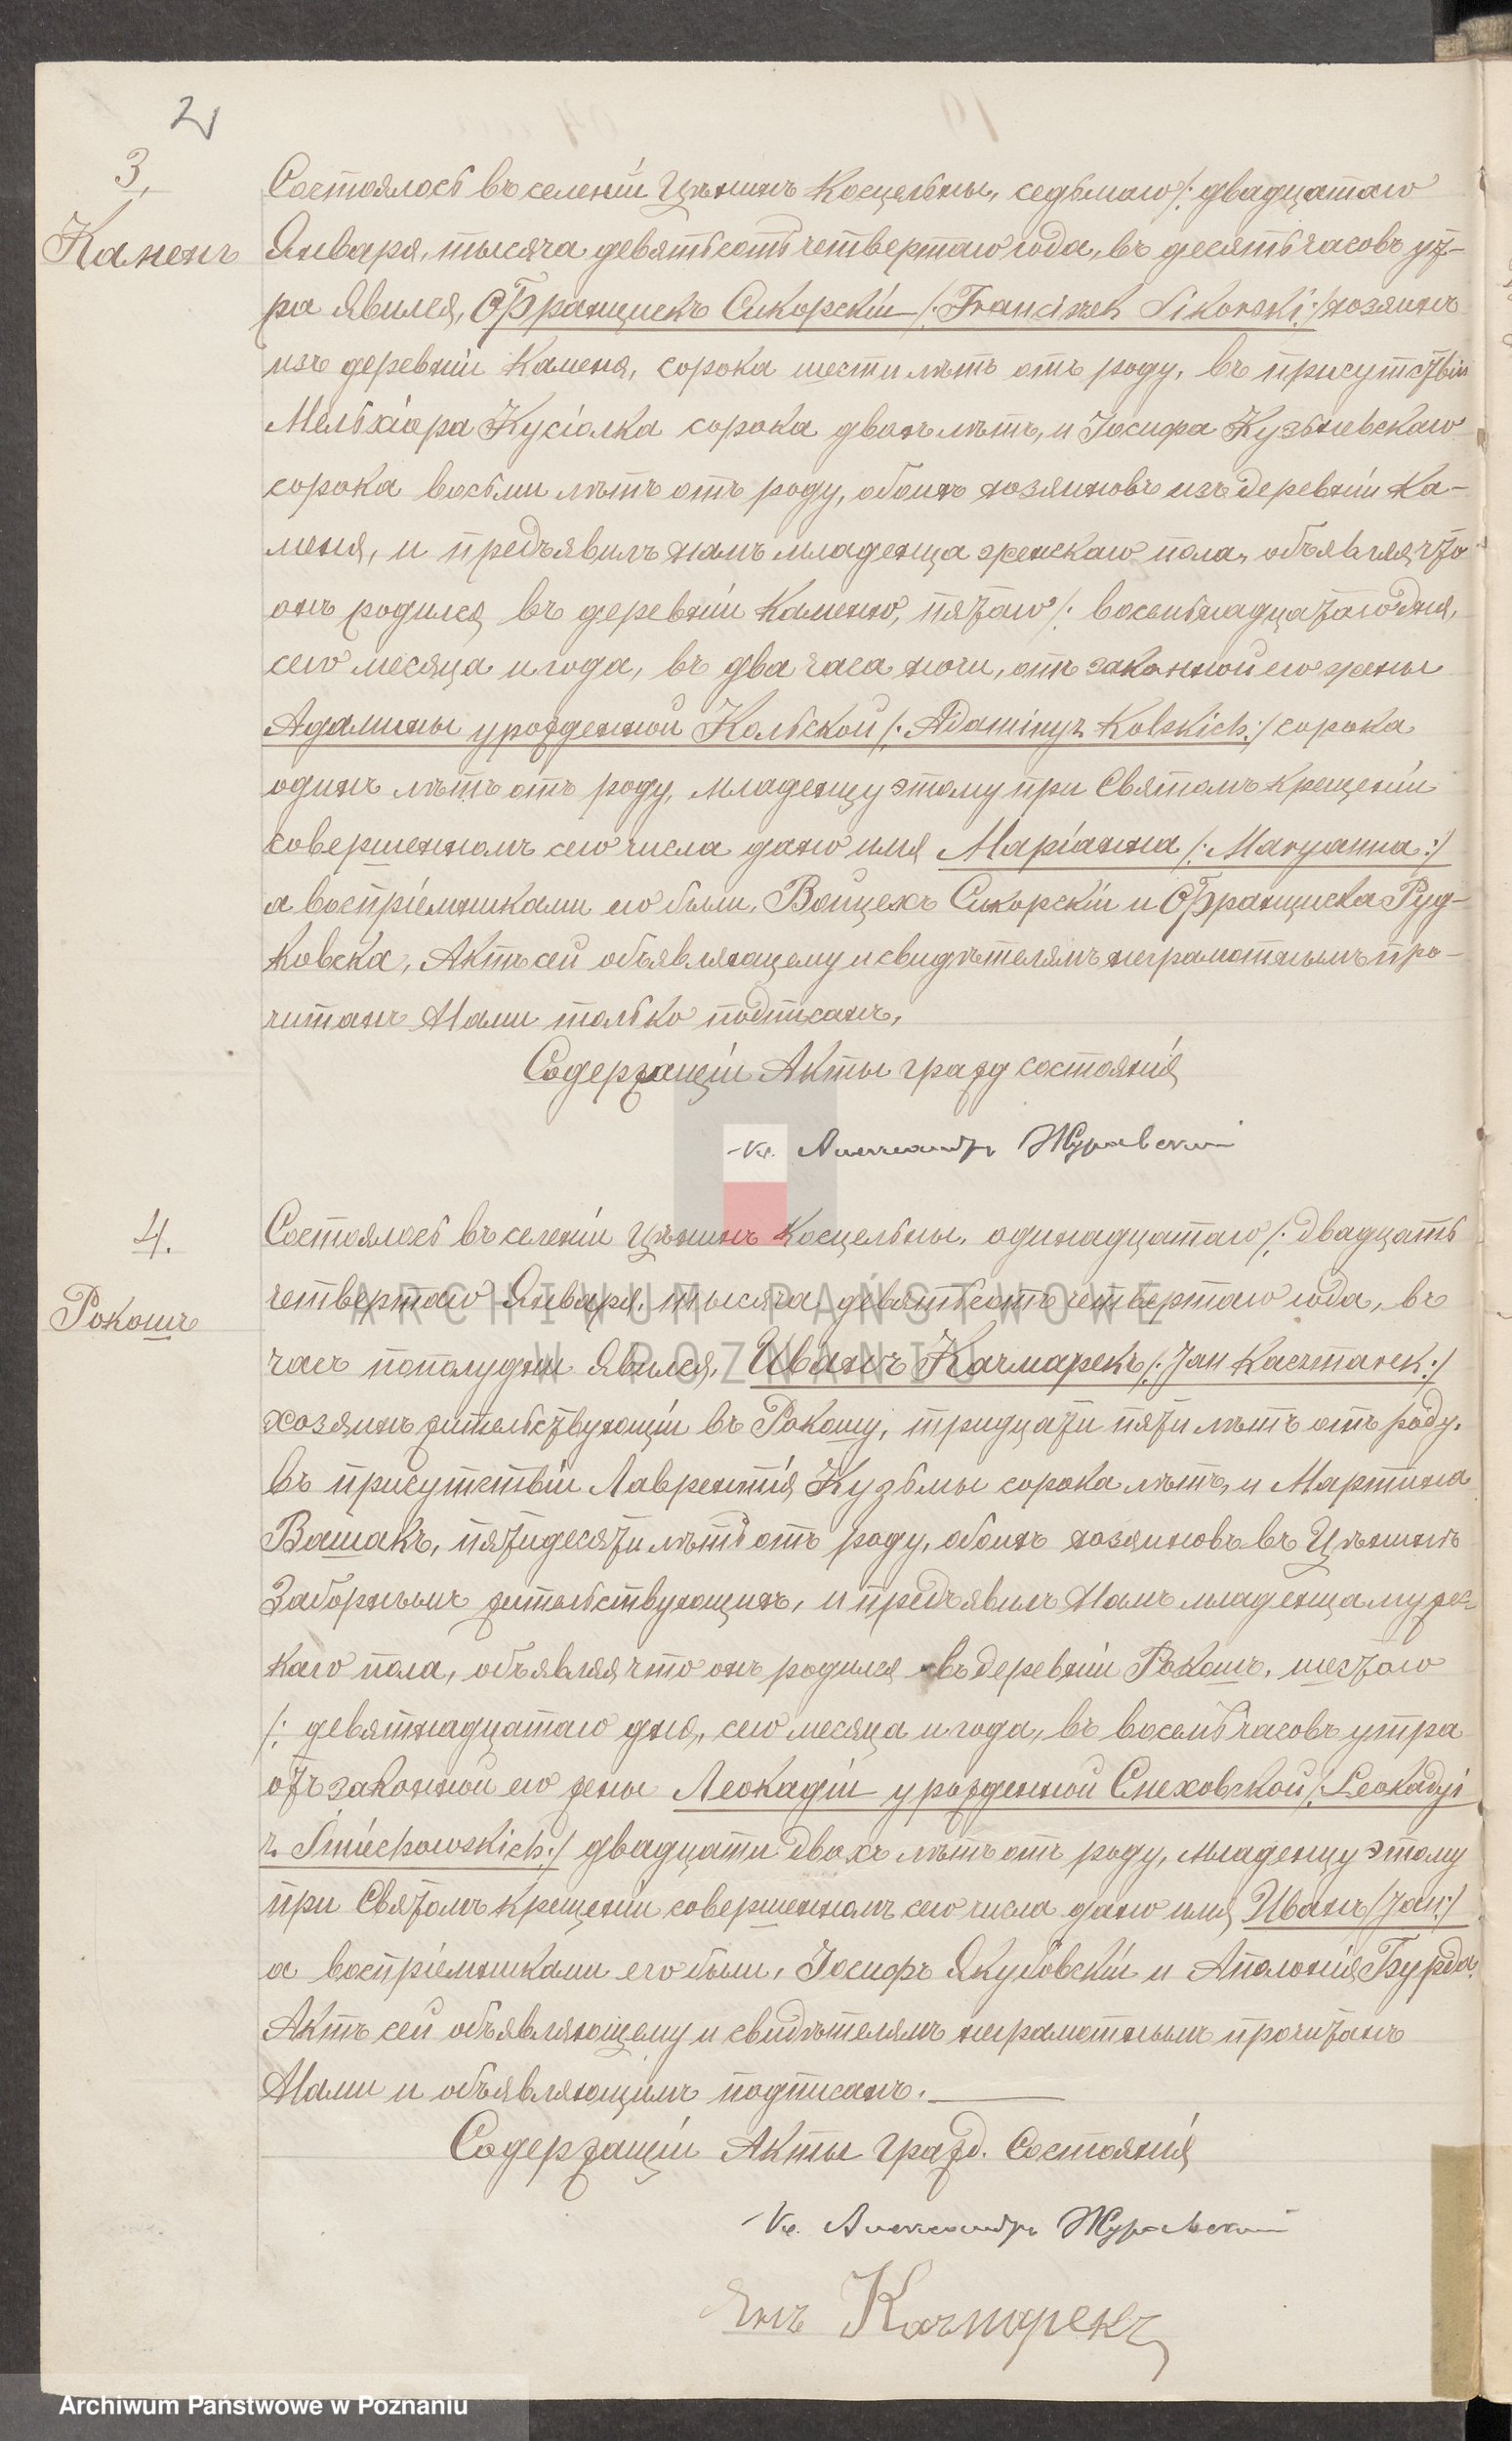 2
3,
Каменъ
Состоялось въ селеніи Цѣнинъ Косцельны, седьмаго /: двадцатаго
Января, тысяча девятьсотъ четвертаго года, въ десять часовъ ут-
ра Явился, Францискъ Сикорскій /: Franciszek Sikorski :/ хозяинъ
изъ деревніи Каменя, сорока шести лѣтъ отъ роду, въ присутствіи
Мельхіора Кусіолка сорока двохъ лѣтъ, и Іосифа Кузьневскаго
сорока восьми лѣтъ отъ роду, обоихъ хозяиновъ изъ деревніи Ка-
меня, и предъявилъ намъ младенца женскаго пола, объявляя что
онъ родился въ деревніи Каменю, пятаго /: восемьнадцатаго дня,
сего месяца и года, въ два часа ночи, отъ законной его жены
Адамины урожденной Кольской /: Adaminy z Kolskich :/ сорока
одинъ лѣтъ отъ роду, младенцу этому при Святомъ крещеніи
совершенномъ сего числа дано имя Маріанна /: Maryanna :/
а воспріемниками его были, Войцехъ Сикорскій и Франциска Руд-
ковска, Актъ сей объявляющему и свидѣтелямъ неграмотнымъ про-
читанъ Нами только подписанъ,
Содержащій Акты гражд состоянія
Кс. Александръ Журавский
4.
Рокошъ
Состоялось въ селеніи Цѣнинъ Косцельны, одинадцатаго /: двадцать
четвертаго Января, тысяча девятьсотъ четвертаго года, въ
часъ пополудни Явился, Иванъ Качмарекъ /: Jan Kaczmarek :/
хозяинъ жительствующій въ Рокошу, тридцати пяти лѣтъ отъ роду,
въ присутствіи Лаврентія Кузьмы сорока лѣтъ, и Мартина
Вашакъ, пятидесяти лѣтъ отъ роду, обоихъ хозяиновъ въ Цѣнинѣ
Заборнымъ жительствующихъ, и предъявилъ Намъ младенца мужес-
каго пола, объявляя что онъ родился въ деревніи Рокошъ, шестаго
/: девятнадцатаго дня, сего месяца и года, въ восемь часовъ утра
отъ законной его жены Леокадіи урожденной Смеховской /: Leokadyi
z Śmiechowskich :/ двадцати двохъ лѣтъ отъ роду, младенцу этому
при Святомъ крещеніи совершенномъ сего числа дано имя Иванъ /: Jan :/
а воспріемниками его были, Іосифъ Якубовскій и Аполонія Бурда.
Актъ сей объявляющему и свидѣтелямъ неграмотнымъ прочитанъ
Нами и объявляющимъ подписанъ.
Содержащій Акты гражд. Состоянія
Кс. Александръ Журавский
Янъ Качмарекъ
ARCHIWUM PAŃSTWOWE
W POZNANIU
Archiwum Państwowe w Poznaniu